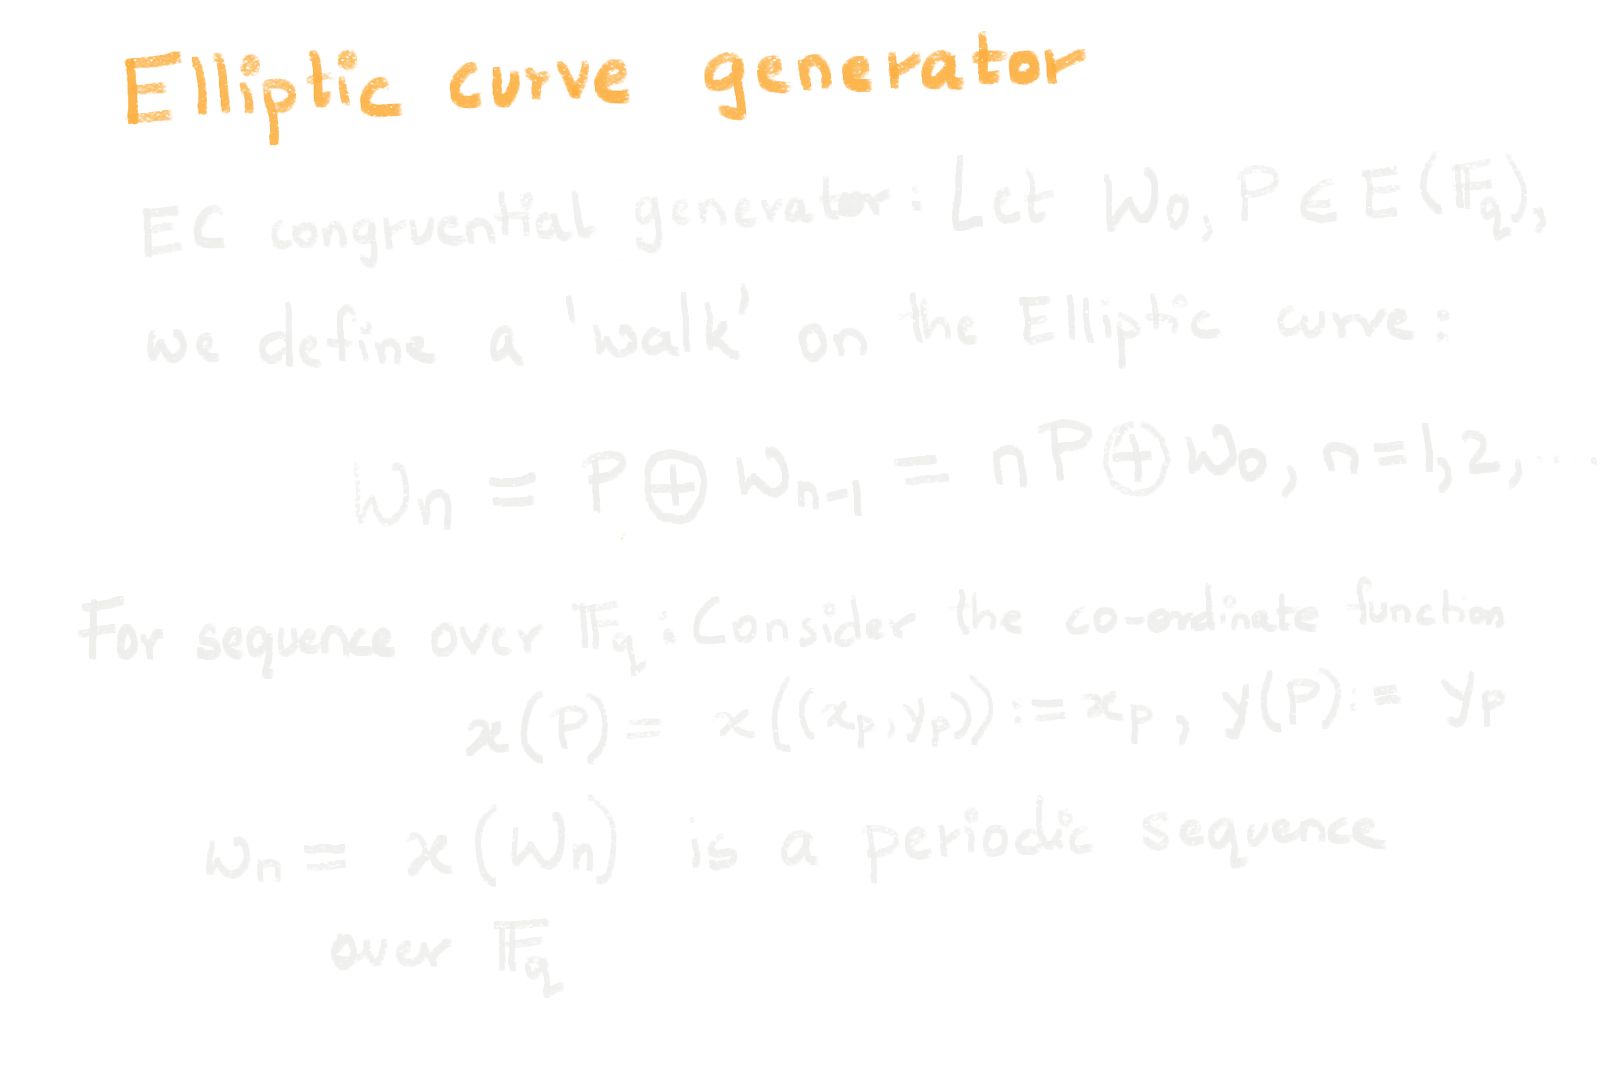 Elliptic curve generator
EC congruential generator: Let W₀, P ∈ E(𝔽q),
we define a 'walk' on the Elliptic curve:
Wn = P ⊕ Wn-1 = nP ⊕ W₀, n=1,2,....
For sequence over 𝔽q: Consider the co-ordinate function
x(P) = x((xp, yp)) := xp, y(P) := yp
wn = x(Wn) is a periodic sequence
over 𝔽q